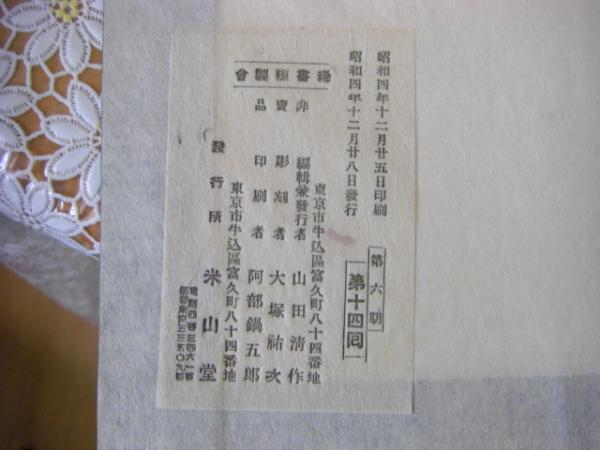 昭和四年十二月廿五日印刷
昭和四年十二月廿八日發行
第六期
第十四回
稀書複製會
非賣品
東京市牛込區富久町八十四番地
編輯兼發行者 山田清作
彫刻者 大塚祐次
印刷者 阿部鍋五郎
東京市牛込區富久町八十四番地
發行所 米山堂